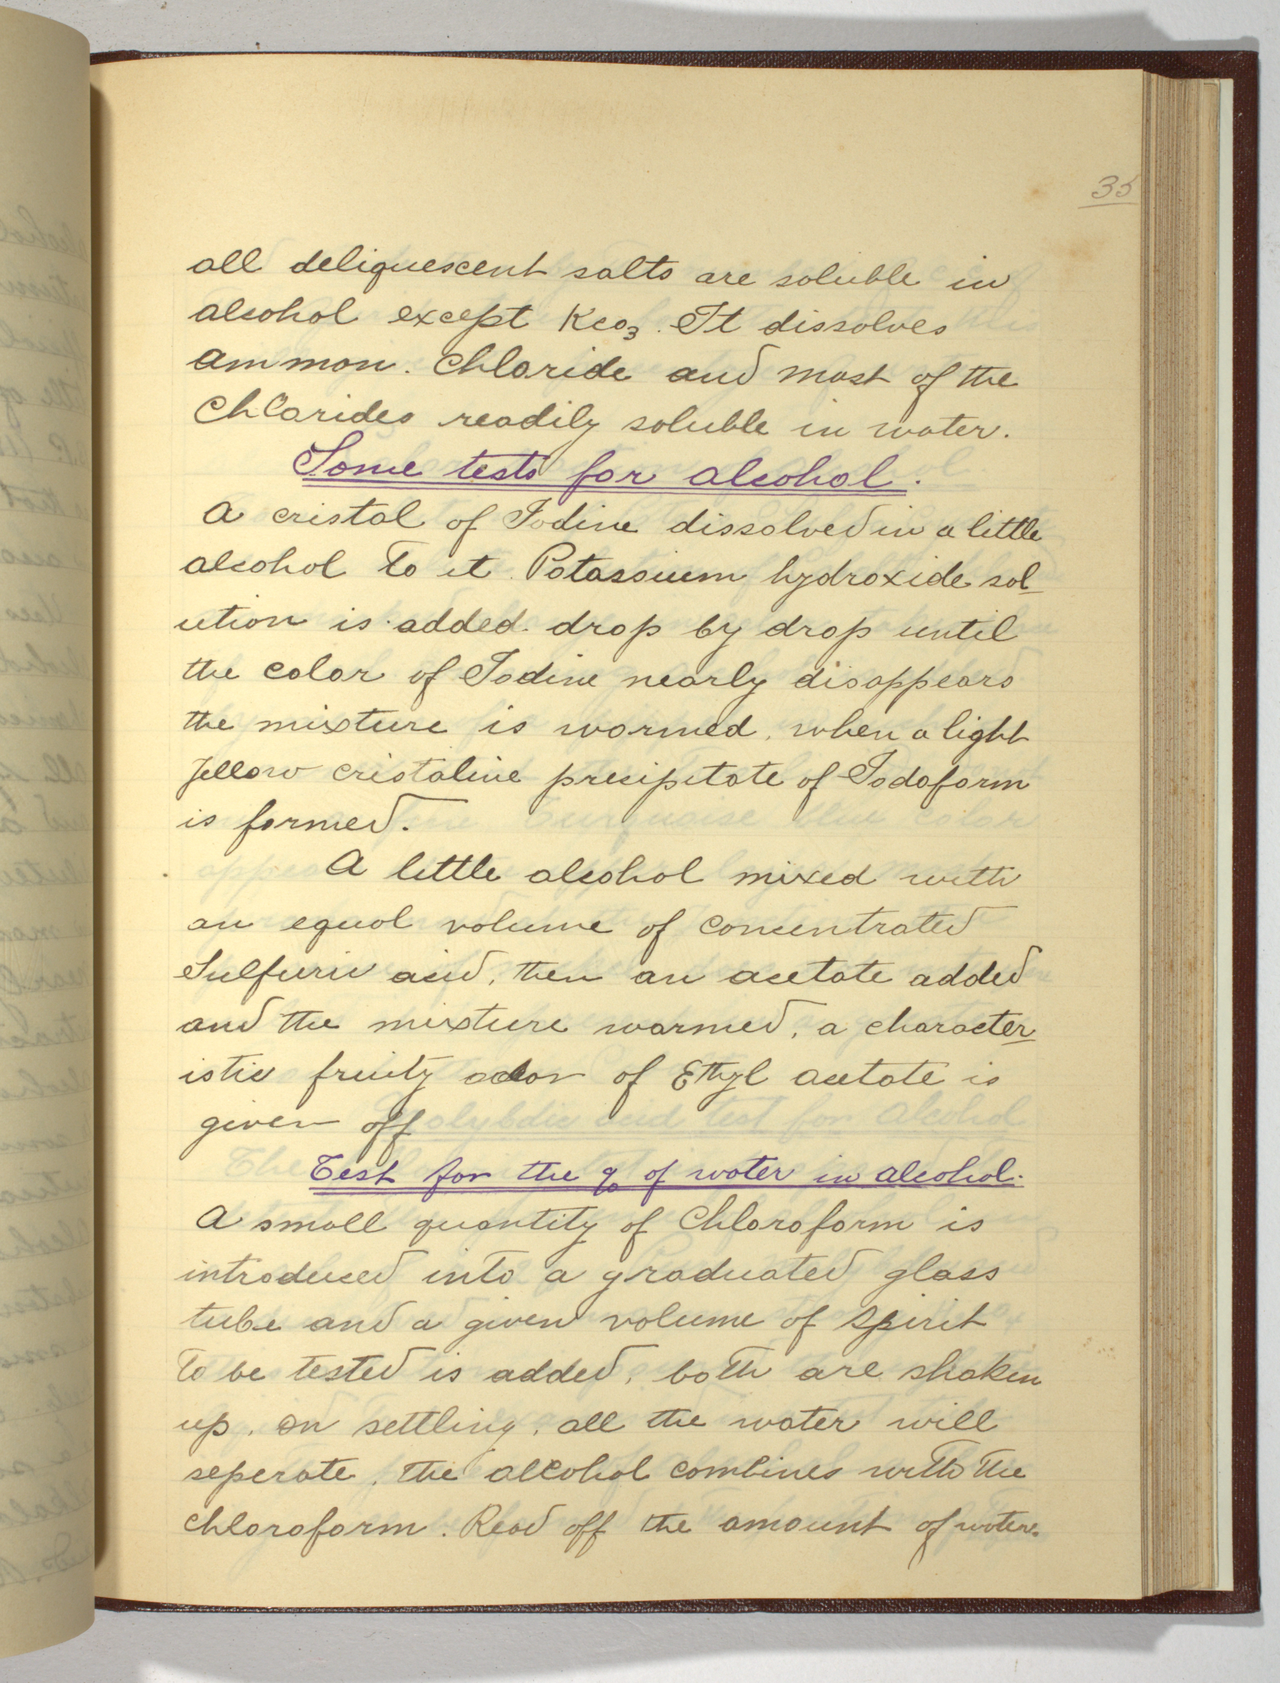 35
all deliquescent salts are soluble in
alcohol except Kco3. It dissolves
ammon. Chloride and most of the
Chlorides readily soluble in water.
Some tests for alcohol.
A cristal of Iodine dissolved in a little
alcohol to it Potassium hydroxide sol-
ution is added drop by drop until
the color of Iodine nearly disappears
the mixture is warmed, when a light
yellow cristaline precipitate of Iodoform
is formed.
A little alcohol mixed with
an equal volume of concentrated
Sulfuric acid, then an acetate added
and the mixture warmed, a character
istic fruity odor of Ethyl acetate is
given off
Test for the % of water in alcohol.
A small quantity of Chloroform is
introduced into a graduated glass
tube and a given volume of spirit
to be tested is added, both are shaken
up, on settling, all the water will
seperate, the alcohol combines with the
chloroform. Read off the amount of water.